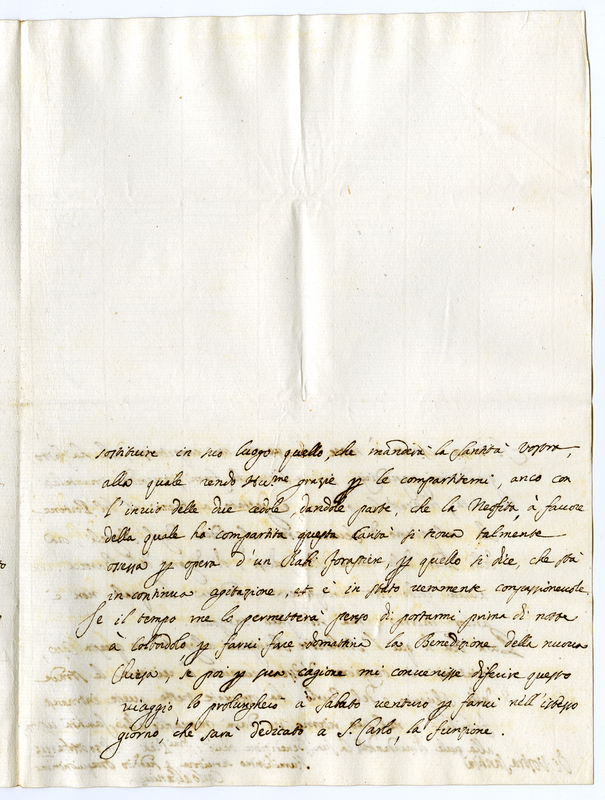 sostituire in suo luogo quello, che manderà la Santità Vostra,
alla quale rendo grazie p le compartitemi, anco con
l'invio delle due cedole, dandole parte, che la Neofita, à favore
della quale ha compartita questa Carità si trova talmente
ossessa p opera d'un Rabi forastire, p quello si dice, che stà
in continua agitazione, et è in stato veramente compassionevole
Se il tempo me lo permetterà penso di portarmi prima di notte
à p farvi fare domattina la Benedizione della nuova
Chiesa, se poi p sua cagione mi convenisse diferire questo
viaggio lo prolungherò à Sabato venturo p farvi nell'istesso
giorno, che sarà dedicato à S. Carlo, la funzione.